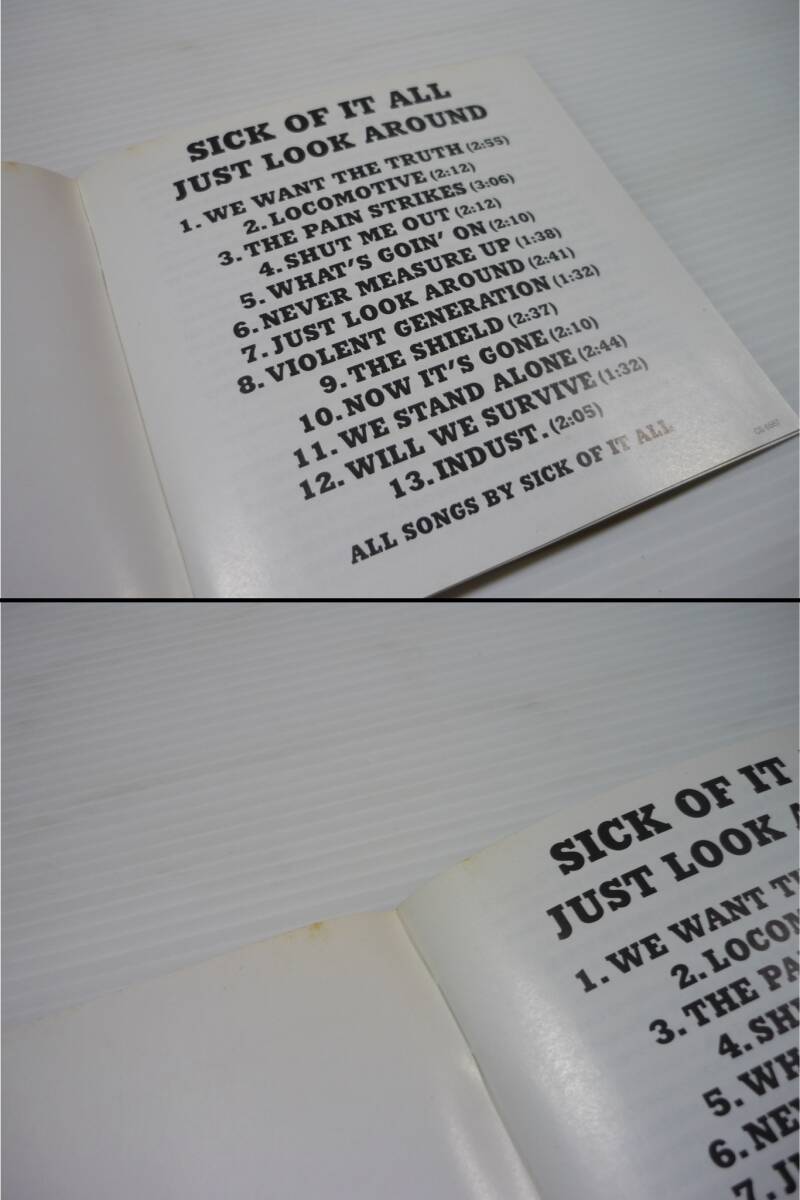 SICK OF IT ALL
JUST LOOK AROUND
1. WE WANT THE TRUTH (2:55)
2. LOCOMOTIVE (2:12)
3. THE PAIN STRIKES (3:06)
4. SHUT ME OUT (2:12)
5. WHAT'S GOIN' ON (2:10)
6. NEVER MEASURE UP (1:38)
7. JUST LOOK AROUND (2:41)
8. VIOLENT GENERATION (1:32)
9. THE SHIELD (2:37)
10. NOW IT'S GONE (2:10)
11. WE STAND ALONE (2:44)
12. WILL WE SURVIVE (1:32)
13. INDUST. (2:05)
ALL SONGS BY SICK OF IT ALL
SICK OF IT
JUST LOOK A
1. WE WANT TH
2. LOCOM
3. THE PA
4. SHU
5. WH
6. NE
7. JU